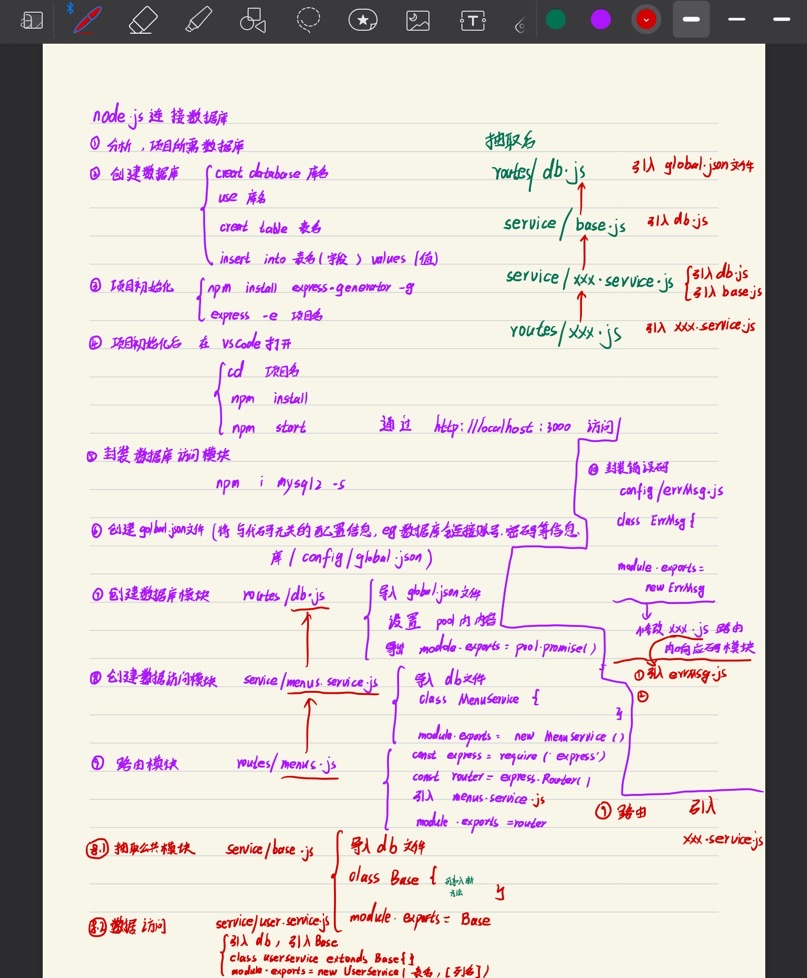 node.js 连接数据库
① 分析，项目所需数据库
② 创建数据库
creat database 库名
use 库名
creat table 表名
insert into 表名(字段) values (值)
③ 项目初始化
npm install express-generator -g
express -e 项目名
④ 项目初始化后 在 vscode 打开
cd 项目名
npm install
npm start 通过 http://localhost:3000 访问
⑤ 封装数据库访问模块
npm i mysql2 -s
⑥ 创建golbal.json文件(将与代码无关的配置信息, eg数据库连接账号.密码等信息.
库/config/global.json)
⑦ 创建数据库模块 routes/db.js
导入 global.json文件
设置 pool内内容
导出 module.exports = pool.promise()
⑧ 创建数据访问模块 service/menus.service.js
导入 db文件
class MenuService {
}
module.exports = new MenuService()
⑨ 路由模块 routes/menus.js
const express = require('express')
const router = express.Router()
引入 menus.service.js
module.exports = router
8.1 抽取公共模块 service/base.js
导入 db 文件
class Base {
方法
}
module.exports = Base
8.2 数据访问 service/user.service.js
引入 db, 引入 Base
class userservice extends Base{}
module.exports = new UserService(表名,[列名])
抽取后
routes/db.js 引入 global.json文件
service/base.js 引入 db.js
service/xxx.service.js
引入db.js
引入 base.js
routes/xxx.js 引入 xxx.service.js
⑩ 封装错误码
config/errMsg.js
class ErrMsg {
module.exports =
new ErrMsg
修改 xxx.js 路由
内响应码模块
① 引入 errMsg.js
②
⑨ 路由 引入
xxx.service.js